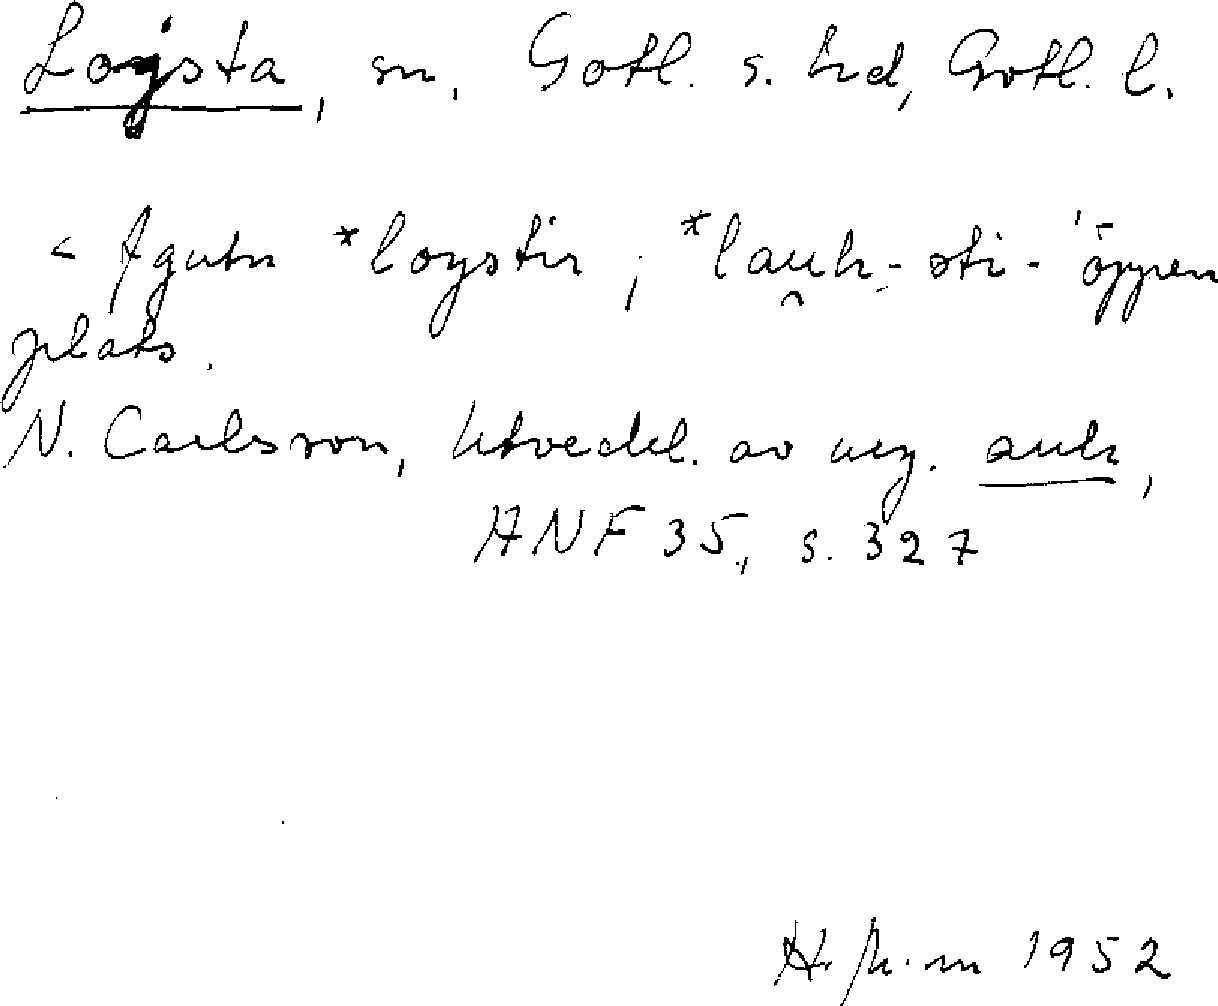 Lojsta, sn, Gotl. s. hd, Gotl. l.
< fgutn *loystir ; *lauh-sti- 'öppen
plats.
N. Carlsson, Utveckl. av urg. auh,
ANF 35, s. 327
1952